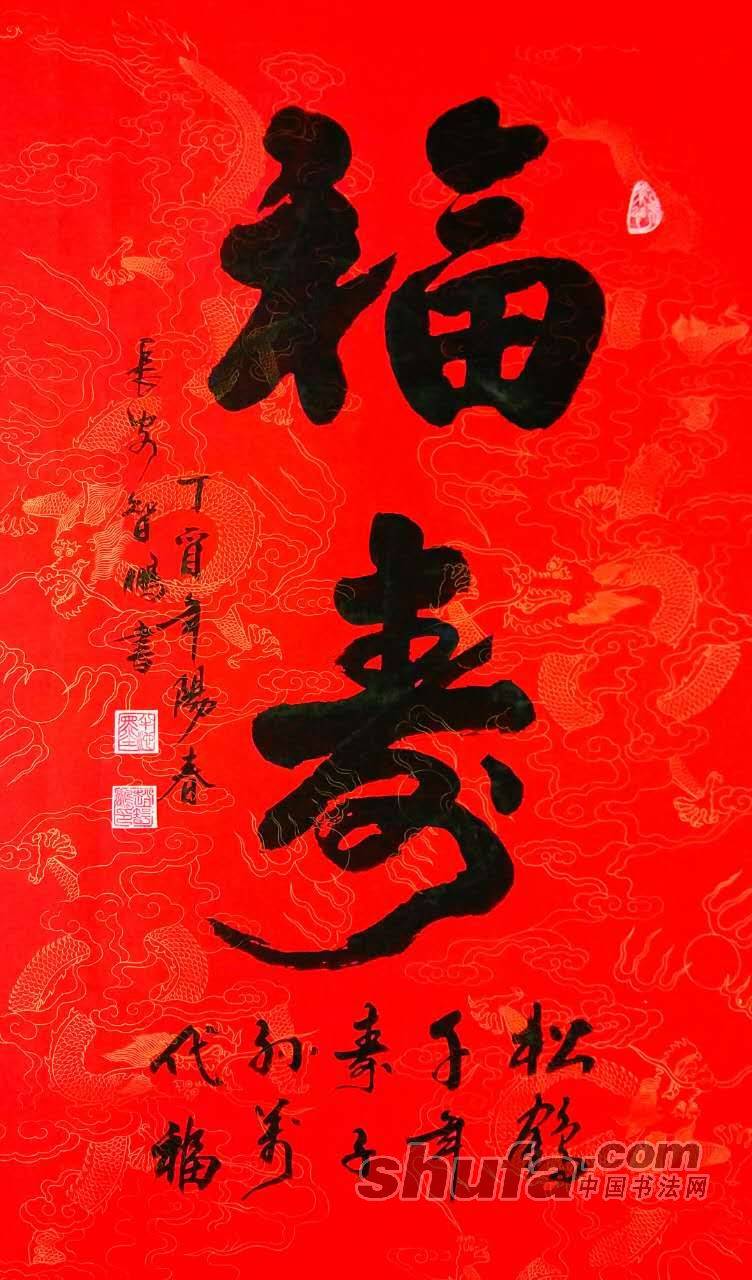 福
寿
松鶴
千年
寿子
孫萬
代福
丁酉年陽春
長安智鵬書
shufa.com
中国书法网